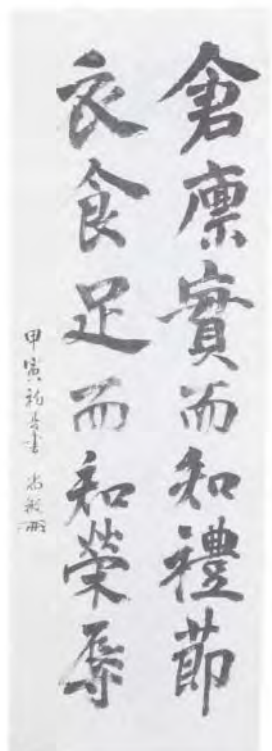 倉廩實而知禮節
衣食足而知榮辱
甲寅初月書